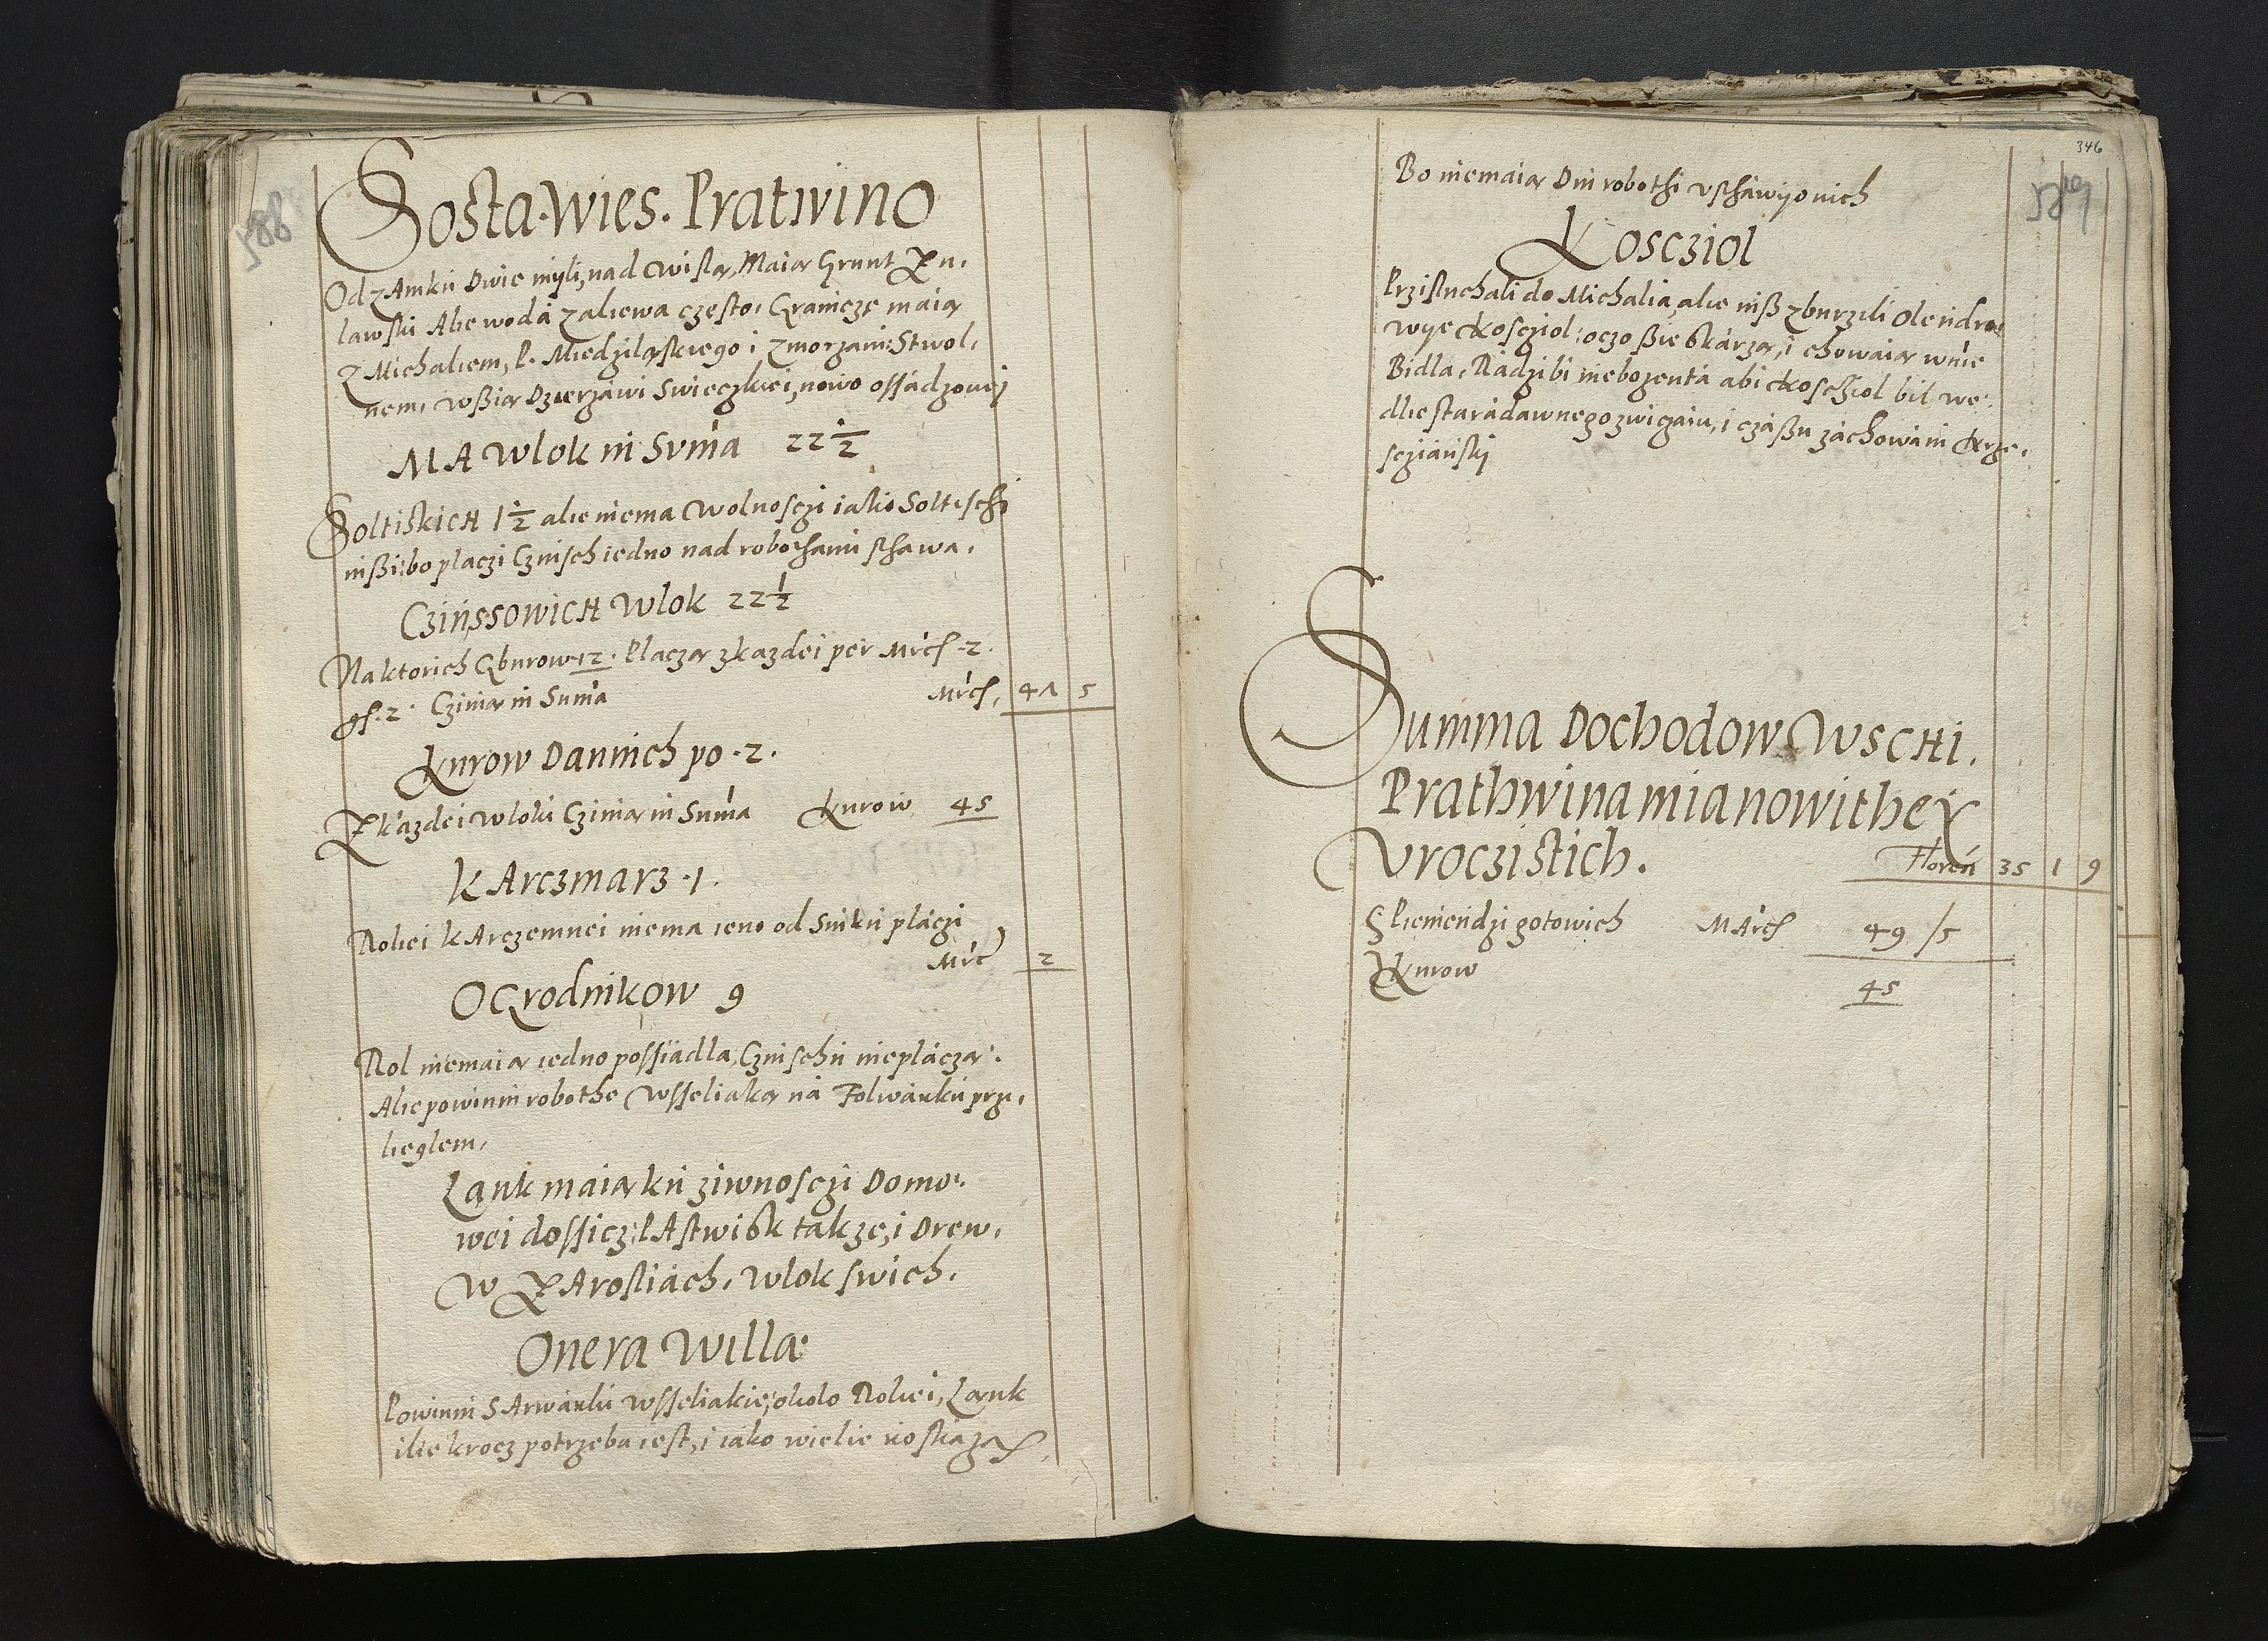 588
Sosta. Wies. Pratwino
Od zAmku Dwie myli, nad Wislą, Maią Grunt Zu,
lawski Alie woda zaliewa często, Graniczę maią
Z Michaliem, P. Miedziląskiego i zmorzani Stwol,
nem, wßią Dzierzawi Swieczkiei, nowo ossadzonej
MA Wlok in Suma 22 1/2
SoltiskicH 1 1/2 alie niema Wolnosczi iako Soltischi
inßi: bo placzi Czinsch iedno nad robothami sthawa,
CzinssowicH Wlok 22 1/2
Naktorich Gburow 12. Placzą zkazdei per Mrcs 2.
gs. 2. Czinią in Suma Mrcs, 41 5
Kurow Dannich po 2.
Z kazdei wloki Czinią in Suma Kurow 45
KArczmarz 1.
Roliei kArczemnei niema ieno od Sinku placzi
Mrc 2
OGrodnikow 9
Rol niemaią iedno possiadla, Czinschu nieplaczą.
Alie powinni robothe Wsseliaką na Folwarku przi,
lieglem,
Ląnk maią ku ziwnosczi Domo,
wei dossicz, PAstwisk takze, i Drew,
W ZArosliach, Wlok swich.
Onera Willæ
Powinni SArwarki wsseliakie, okolo Roliei, Ląnk
ilie krocz potrzeba iest, i iako wielie roskazą
346
589
Bo niemaią Dni robothi vsthawyonich
Koscziol
Przisluchali do Michalia, alie niß zburzili Olendro,
wye Koscziol: oczo ßie skarzą, i chowaią wnie
Bidla, Radzibi niebozenta abi Koscziol bil we,
dlie staradawnego zwiczaiu, i czaßu zachowani Krze,
scziansky
Summa Dochodow WscHi.
Prathwina mianowithe Y
Vroczistich. Floren 35 1 9
Pieniendzi gotowich MArcs 49 / 5
Kurow 45